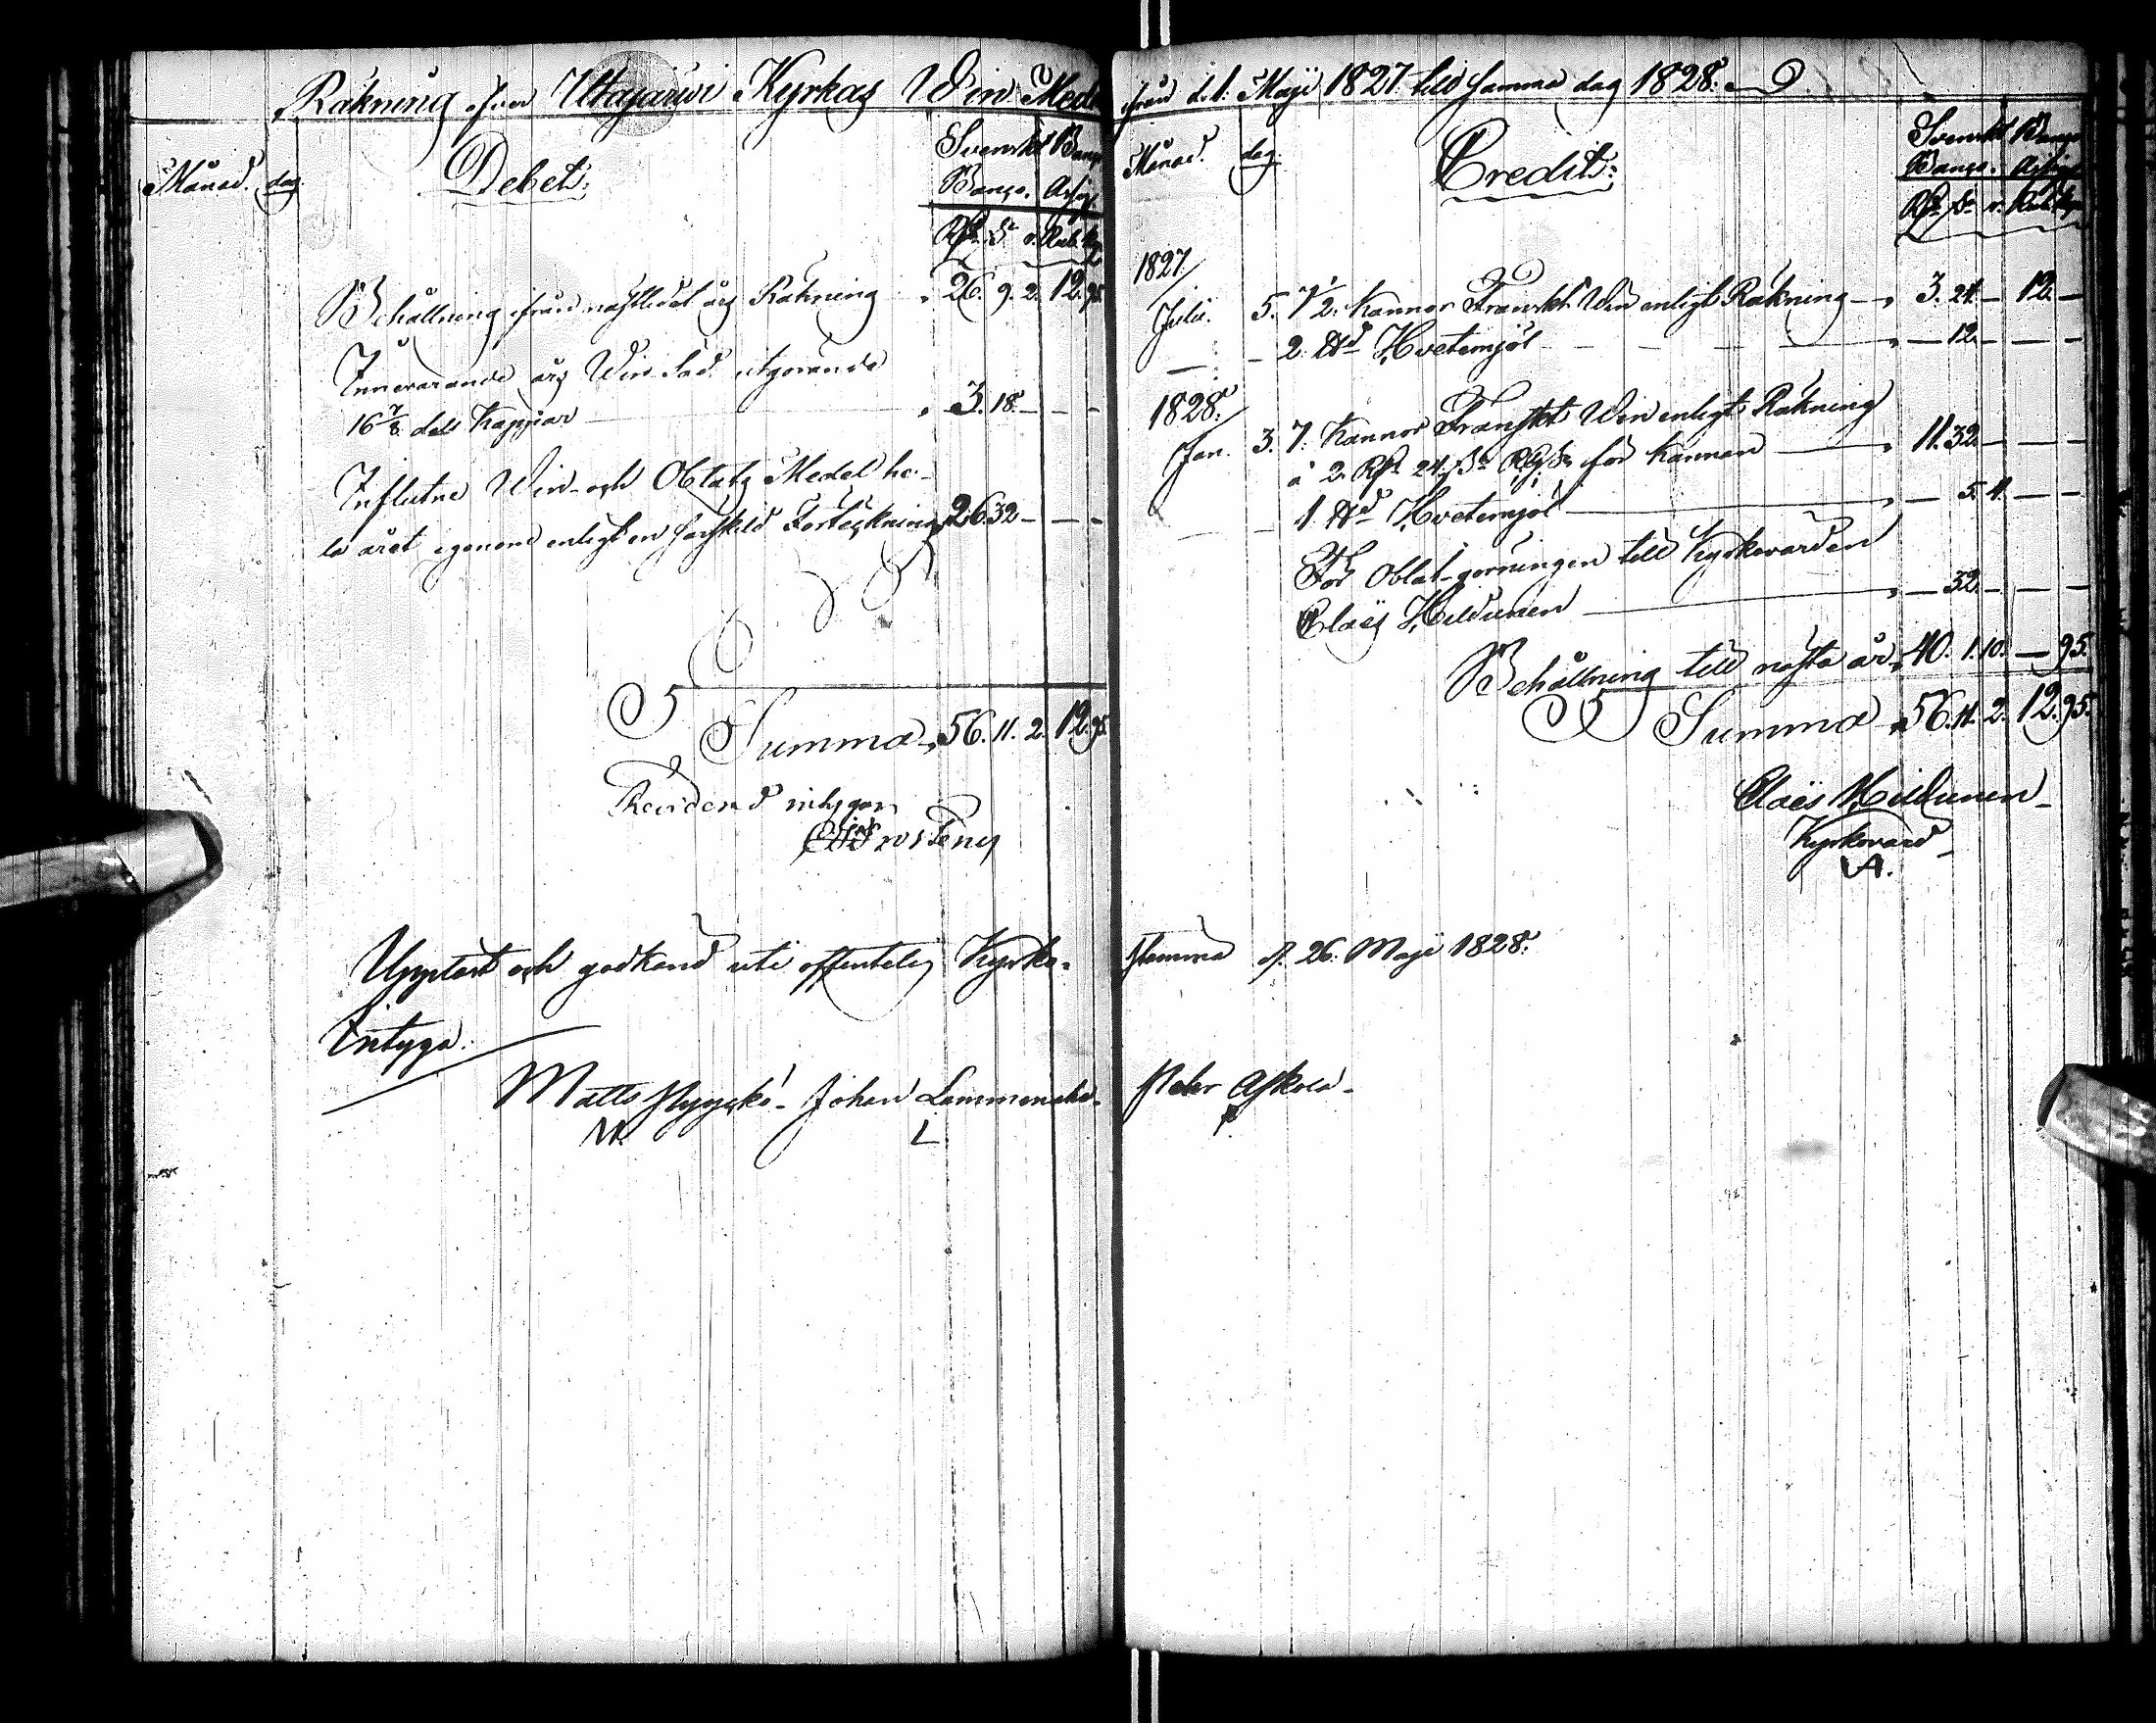 Räkning öfver Uttajärwi Kyrkas Win Medel
Månad. dag. Debet: Svenskt Banco. Banco Assig.
Rd. s. r. Rub. kop.
Behållning ifrån nästledet års Räkning 26. 9. 2. 12. 95.
Innevarande års Win Säd utgörande
16 7/8 dels Kappar 3. 18. - - -
Influtne Win- och Oblats Medel he-
la året igenom enligt en särskild Förteckning 26. 32 - - -
Summa 56. 11. 2. 12. 95.
Revidend intygar
Uppläst och godkänd uti offentelig Kyrko-
Intyga.
Matts Johan Lammenaho.
M. L
från d. 1. Maji 1827 till samma dag 1828.
Månad. dag. Credit: Svenskt Banco. Banco Assig.
Rd. s. r. Rub. kop.
1827
Julii. 5. 7 1/2. Kannor Franskt Win enligt Räkning 3. 24. - 12. -
- 2. Hvetemjöl - 12. - - -
1828.
Jan. 3. 7. Kannor Franskt Win enligt Räkning
à 2. Rd. 24. s. för Kannan 11. 32. - - -
- 1. Hvetemjöl - 5. 4. - -
För Oblat-görningen till Kyrkovärden
Claës Hildunen - 32. - - -
Behållning till nästa år 40. 1. 10. - 95.
Summa 56. 11. 2. 12. 95.
Claës Hildunen
Kyrkovärd
stämma d. 26. Maji 1828.
Petter